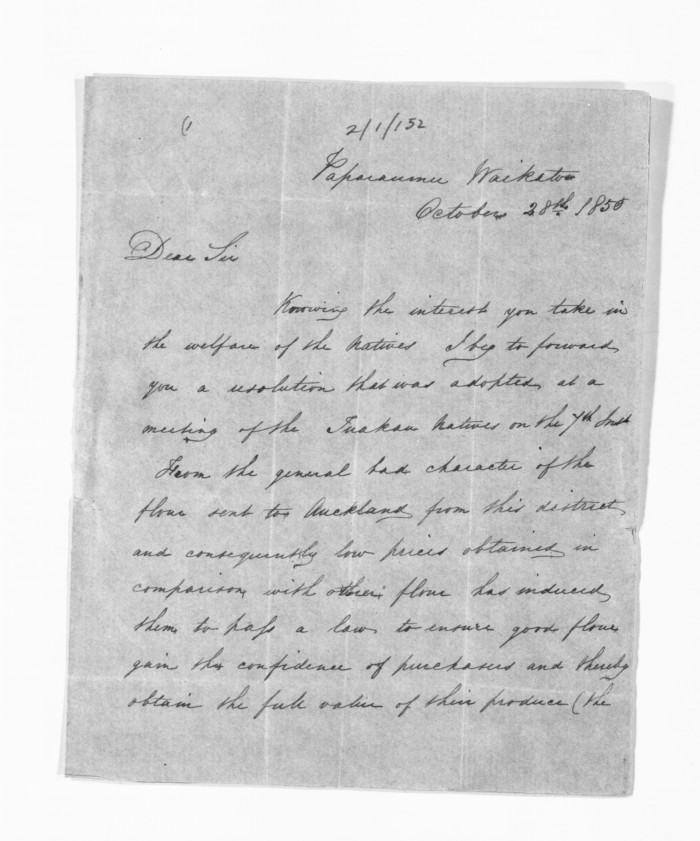 (1
2/1/152
Paparaumu Waikatou
October 28th 1850
Dear Sir
Knowing the interest you take in
the welfare of the Natives I beg to forward
you a resolution that was adopted at a
meeting of the Tuakau Natives on the 7th Inst
From the general bad character of the
flour sent to Auckland from this district
and consequently low prices obtained in
comparison with other flour has induced
them to pass a law to ensure good flour
gain the confidence of purchasers and thereby
obtain the full value of their produce (the